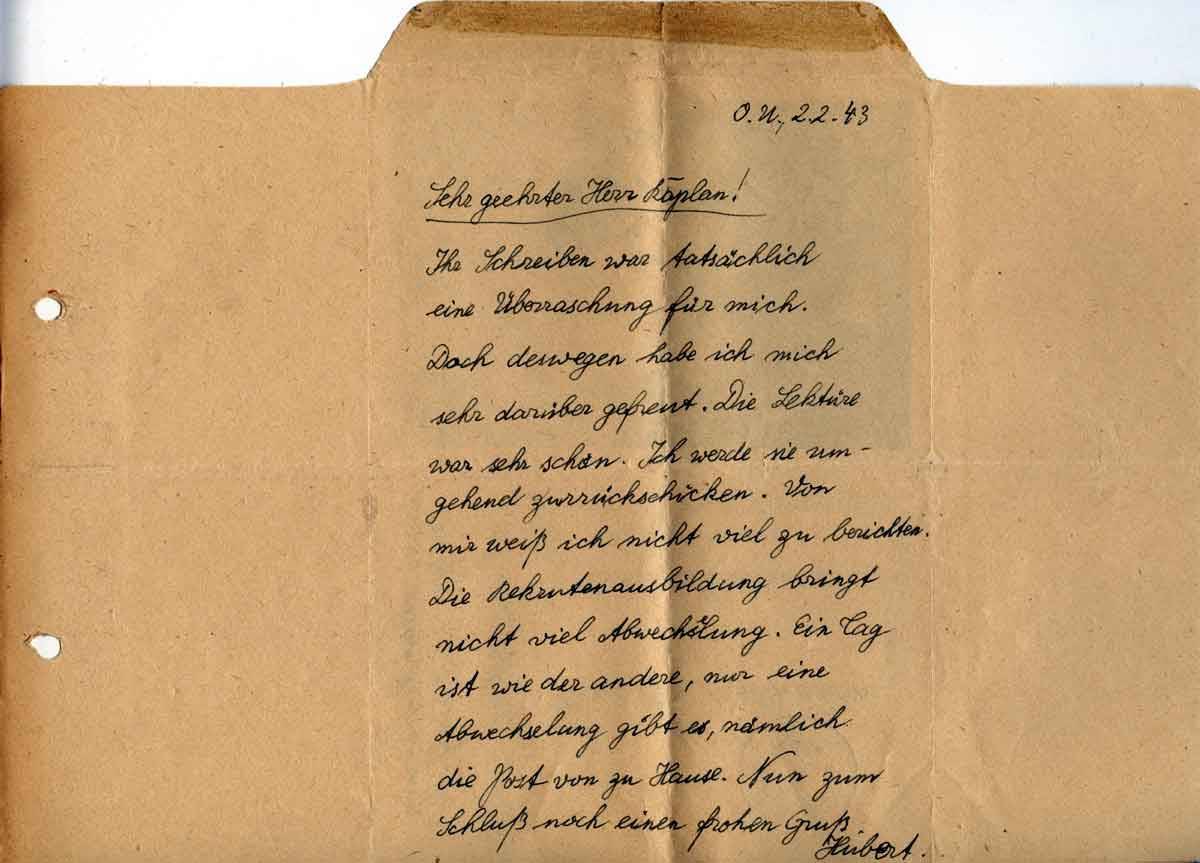 O.U., 2.2.43
Sehr geehrter Herr Kaplan!
Ihr Schreiben war tatsächlich
eine Überraschung für mich.
Doch deswegen habe ich mich
sehr darüber gefreut. Die Lektüre
war sehr schön. Ich werde sie um-
gehend zurrückschicken. Von
mir weiß ich nicht viel zu berichten.
Die Rekrutenausbildung bringt
nicht viel Abwechslung. Ein Tag
ist wie der andere, nur eine
Abwechselung gibt es, nämlich
die Post von zu Hause. Nun zum
Schluß noch einen frohen Gruß
Hubert.